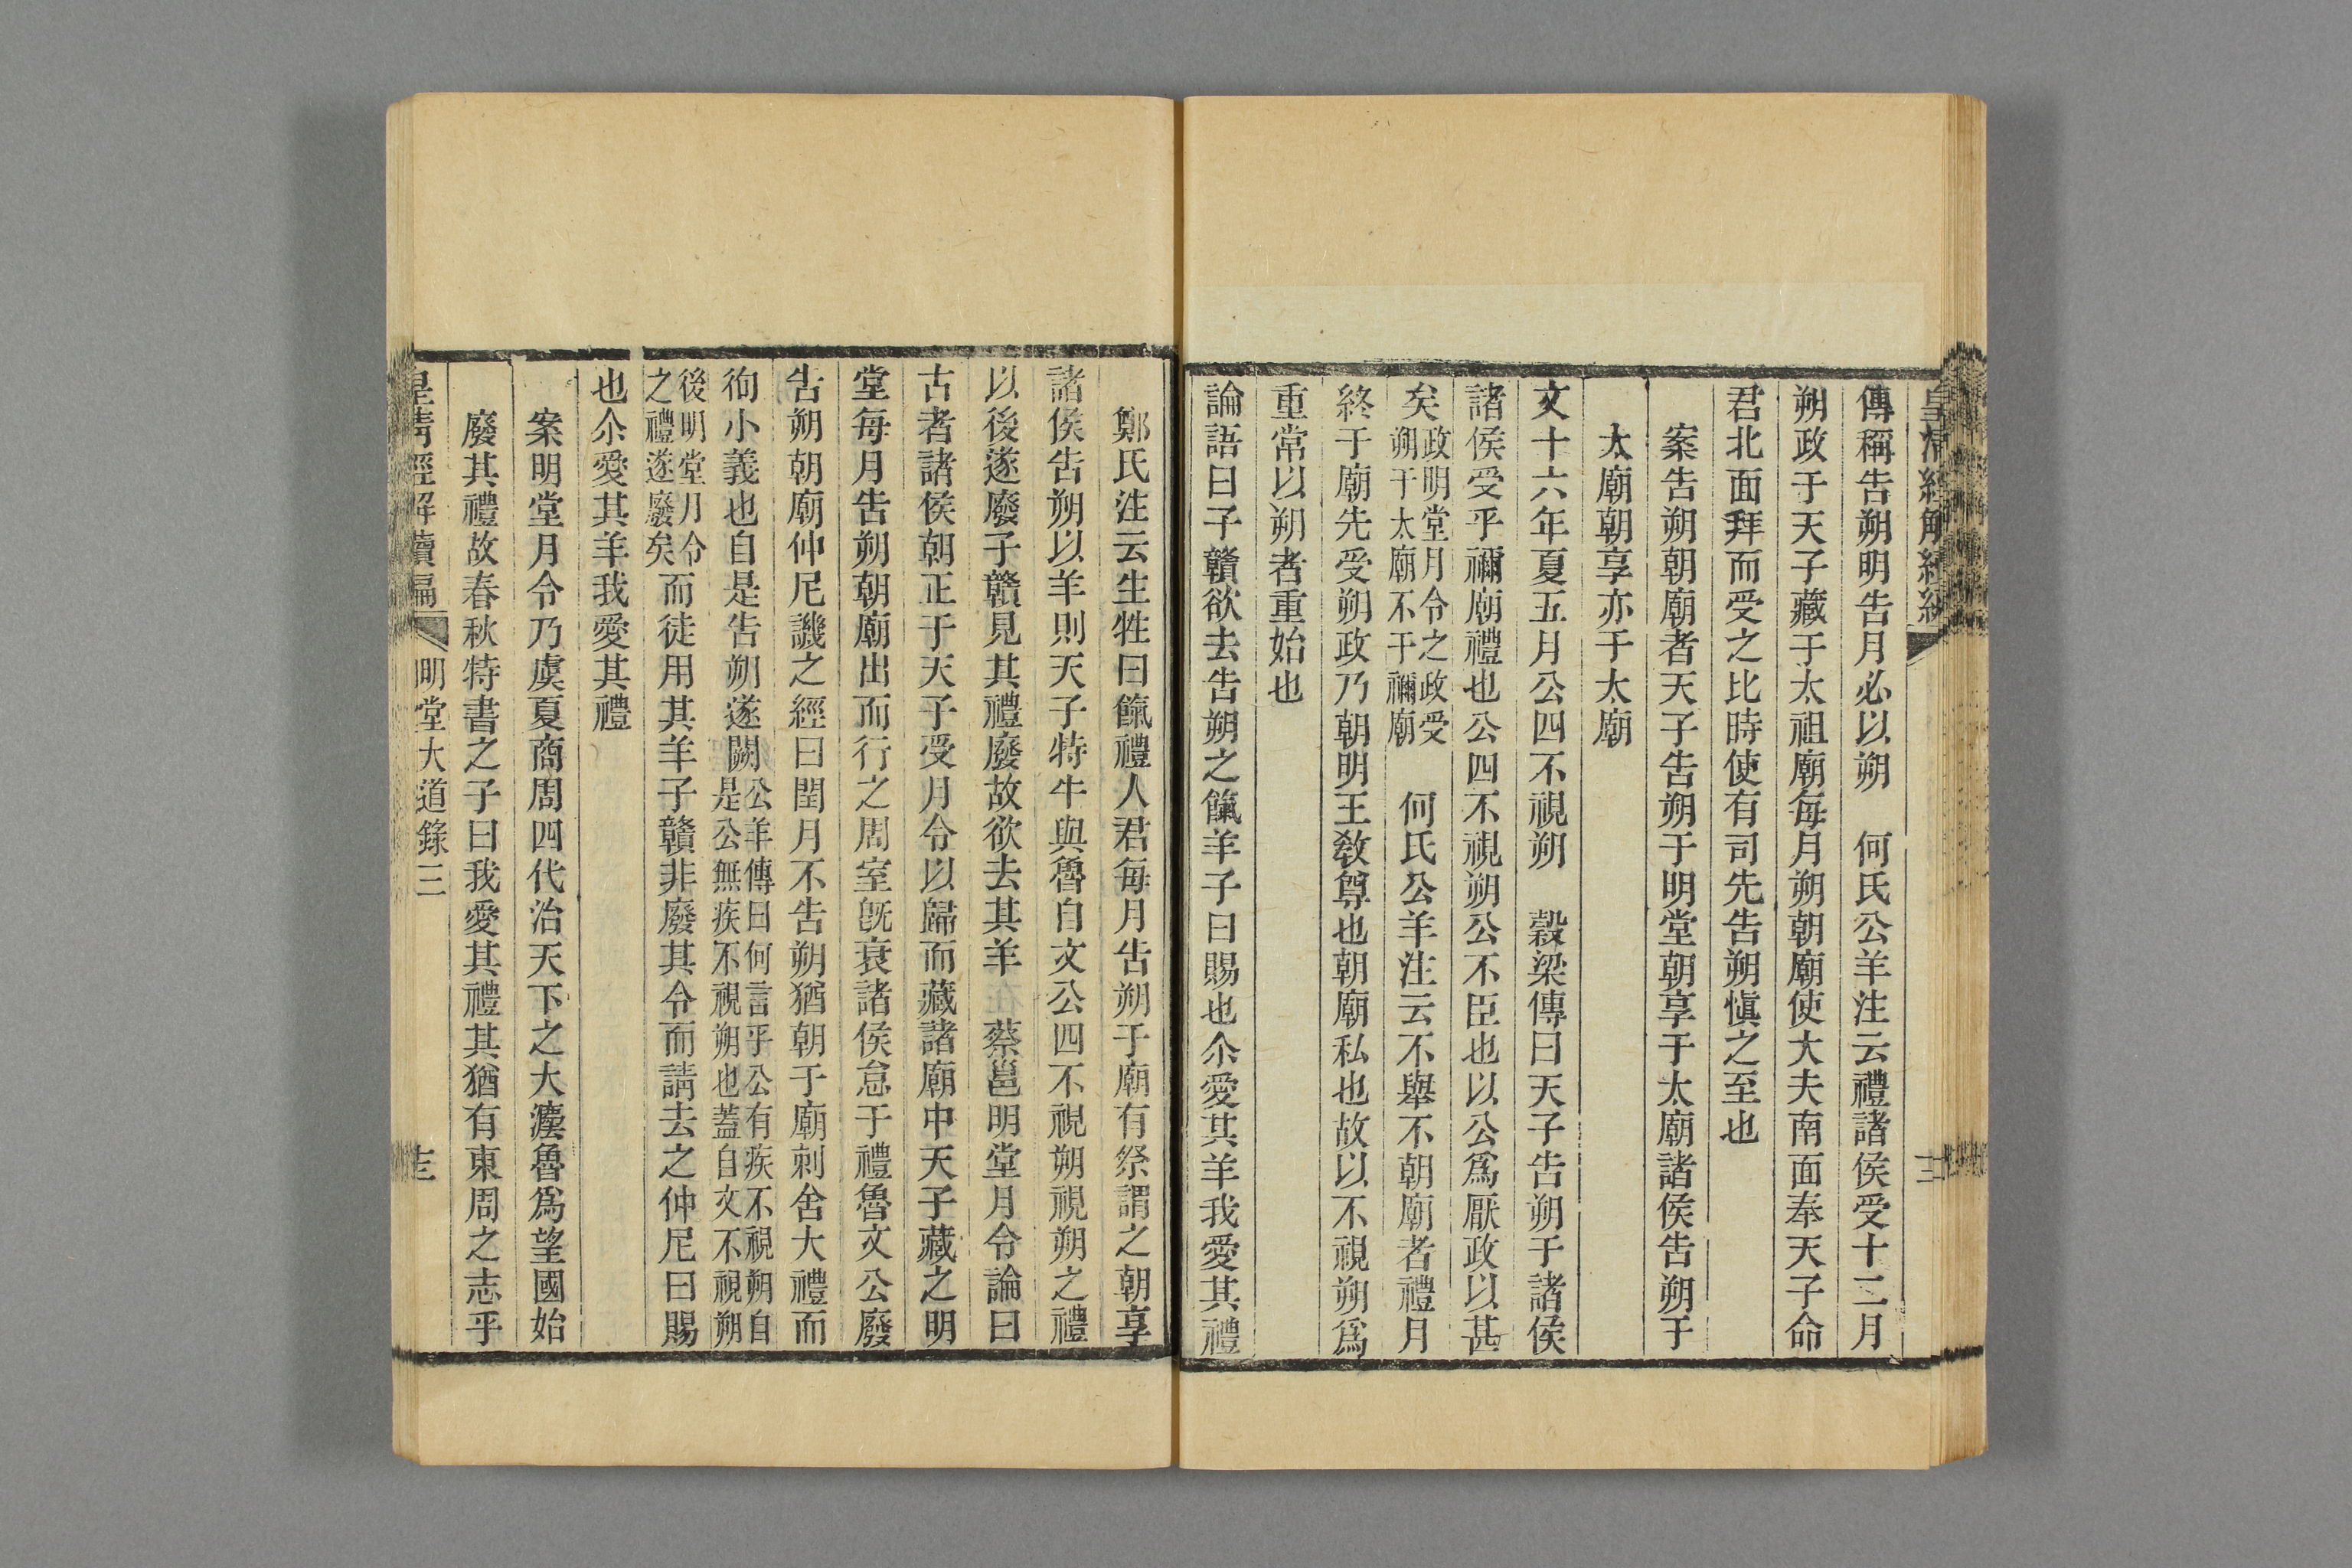 傳稱告朔明告月必以朔　何氏公羊注云禮諸侯受十二月
朔政于天子藏于太祖廟每月朔朝廟使大夫南面奉天子命
君北面拜而受之比時使有司先告朔愼之至也
案告朔朝廟者天子告朔于明堂朝享于太廟諸侯告朔于
太廟朝享亦于太廟
文十六年夏五月公四不視朔　穀梁傳曰天子告朔于諸侯
諸侯受乎禰廟禮也公四不視朔公不臣也以公爲厭政以甚
矣政明堂月令之政受朔于太廟不于禰廟　何氏公羊注云不舉不朝廟者禮月
終于廟先受朔政乃朝明王敎尊也朝廟私也故以不視朔爲
重常以朔者重始也
論語曰子贛欲去告朔之餼羊子曰賜也尒愛其羊我愛其禮
鄭氏注云生牲曰餼禮人君每月告朔于廟有祭謂之朝享
諸侯告朔以羊則天子特牛與魯自文公四不視朔視朔之禮
以後遂廢子贛見其禮廢故欲去其羊　蔡邕明堂月令論曰
古者諸侯朝正于天子受月令以歸而藏諸廟中天子藏之明
堂每月告朔朝廟出而行之周室旣衰諸侯怠于禮魯文公廢
告朔朝廟仲尼譏之經曰閏月不告朔猶朝于廟刺舍大禮而
徇小義也自是告朔遂闕公羊傳曰何言乎公有疾不視朔自是公無疾不視朔也蓋自文不視朔
後明堂月令之禮遂廢矣而徒用其羊子贛非廢其令而請去之仲尼曰賜
也尒愛其羊我愛其禮
案明堂月令乃虞夏商周四代治天下之大灋魯爲望國始
廢其禮故春秋特書之子曰我愛其禮其猶有東周之志乎
皇清經解續編　明堂大道錄三